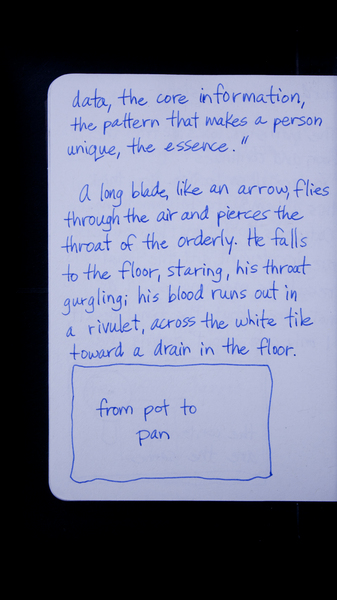 data, the core information,
the pattern that makes a person
unique, the essence."
A long blade, like an arrow, flies
through the air and pierces the
throat of the orderly. He falls
to the floor, staring, his throat
gurgling; his blood runs out in
a rivulet, across the white tile
toward a drain in the floor.
from pot to
pan